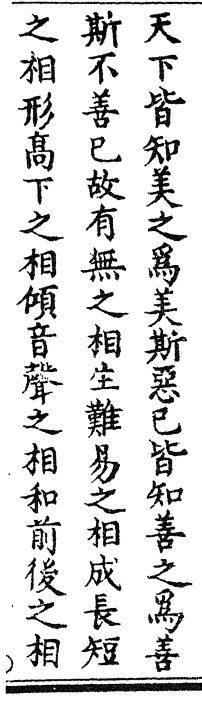 天下皆知美之爲美斯惡已皆知善之爲善
斯不善已故有無之相生難易之相成長短
之相形髙下之相傾音聲之相和前後之相